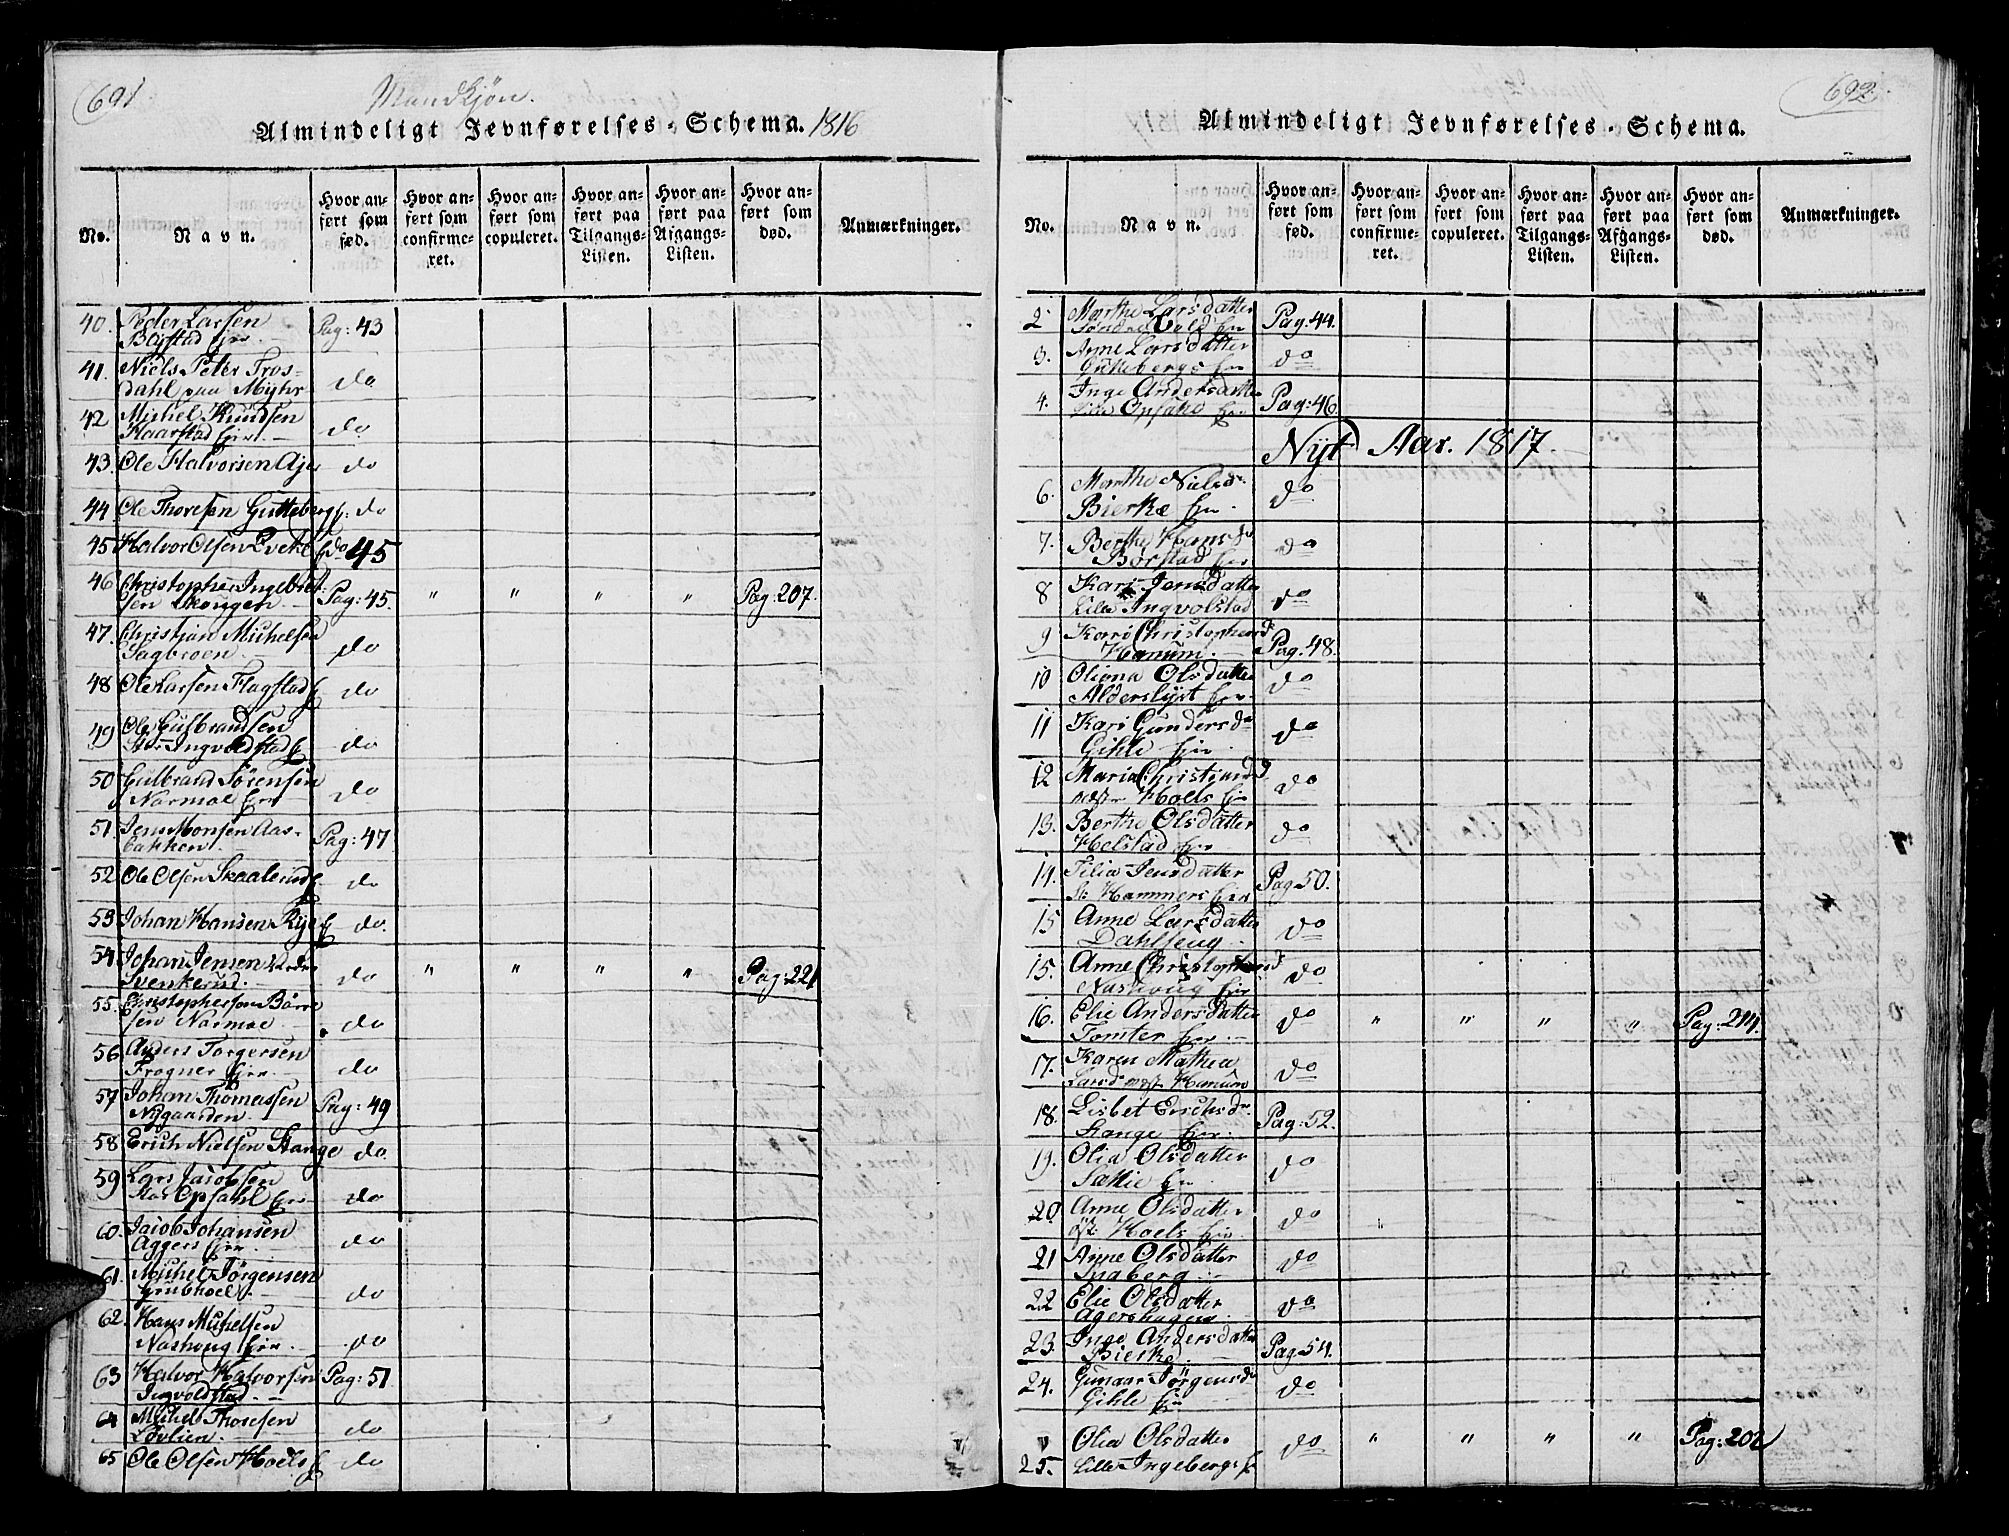 691
Mandkjøn.
Almindeligt Jevnførelses-Schema. 1816
No.
Navn.
Hvor anført som fød.
Hvor anført som confirmeret.
Hvor anført som copuleret.
Hvor anført paa Tilgangs-Listen.
Hvor anført paa Afgangs-Listen.
Hvor anført som død.
Anmærkninger.
40. Peder Larsen Pag: 43
Bagstad
41. Niels Peter Fros- do
dahl paa Myhr
42 Michel Knudsen
Haarstad do
43. Ole Halvorsen do
44 Ole Thoresen Gutteberg do
45 Halvor Olsen do 45
46 Christopher Ingebret-
sen Skougen Pag: 45. " " " " Pag: 207.
47. Christian Michelsen
Sagbroen. do
48 Ole Larsen Flagstad do
49 Ole Gulbrandsen
Stor Ingvoldstad do
50 Gulbrand Sørensen
Narmoe do
51. Jens Monsen Aas-
bakken Pag: 47.
52 Ole Olsen Skaalerud do
53 Johan Hansen Rye do.
54 Johan Jensen
Svenkerud. do " " " " Pag: 221
55. Christophersen Børre
sen Narmoe do
56 Anders Torgersen
Frogner do
57 Johan Thomassen
Nygaarden. Pag: 49
58 Erich Nielsen Stange do
59 Lars Jacobsen
Stor Opsahl do
60. Jacob Johansen
Aggers do
61. Michel Jørgensen
Grubhoel. do
62. Hans Michelsen
Nashoug do
63 Halvor Halvorsen Pag: 51
Ingvoldstad
64 Michel Thoresen
Løvlien do
65 Ole Olsen Hoels do
692.
Almindeligt Jevnførelses-Schema.
No.
Navn.
Hvor anført som fød.
Hvor anført som confirmeret.
Hvor anført som copuleret.
Hvor anført paa Tilgangs-Listen.
Hvor anført paa Afgangs-Listen.
Hvor anført som død.
Anmærkninger.
2 Marthe Larsdatter
Pag: 44.
3. Anne Larsdatter
Guttebergs do
4. Inge Andersdatter
Lille Opsahl Pag: 46
Nyt Aar. 1817.
6. Marthe Nielsd.
Bierke do
7. Berthe Hansd
Borstad do
8 Kari Jensdatter
Lille Ingvolstad do
9 Kari Christophersd
Hanum. Pag. 48.
10 Oliana Olsdatter
Alderslyst do
11 Kari Gundersd
Gihle do
12 Maria Christiansd
Hoels do
13. Berthe Olsdatter
Helstad do
14. Silia Jensdatter
St. Hammers Pag 50.
15 Anne Larsdatter
Dahlseng do
15. Anne Christophersd
Nashoug do
16. Elie Andersdatter
Tomter do " " " " Pag: 214.
17. Karen Mathea
Larsd Hanum do
18. Lisbet Erichsd.
Stange Pag: 52.
19. Olia Olsdatter
do
20. Anne Olsdatter
Hoels do
21 Anne Olsdatter
do
22 Elie Olsdatter
Agershagen do
23. Inge Andersdatter
Bierke Pag 54.
24. Gunaar Jørgensd
Gihle do
Olia Olsdatter do " " " " Pag: 202
25. Lille Ingebergs